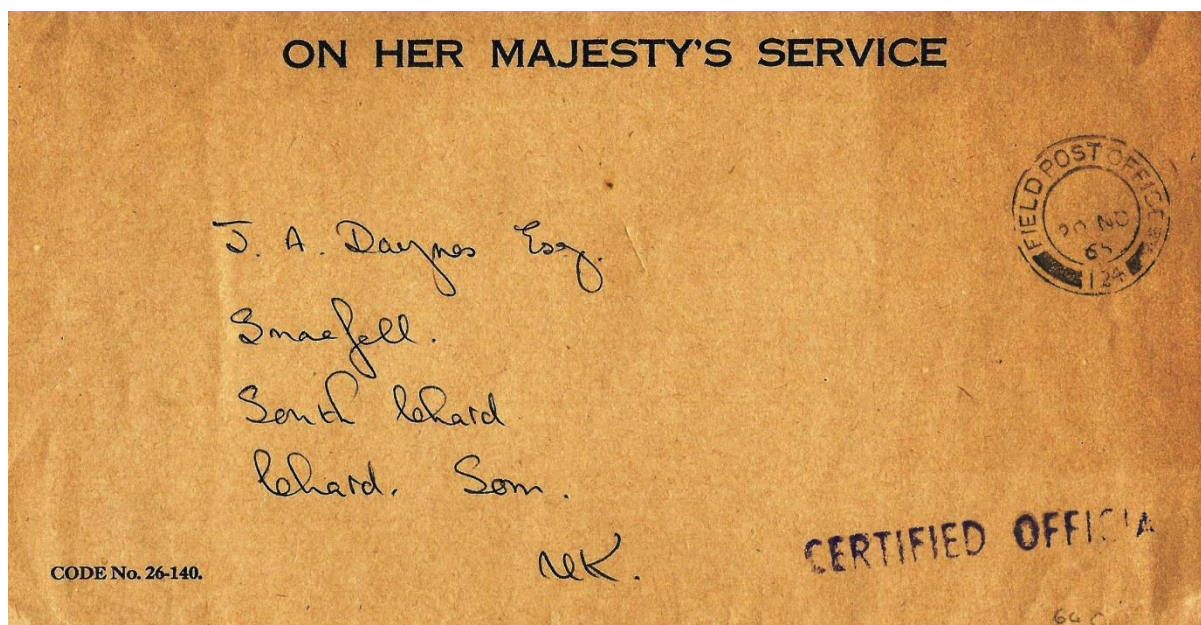 ON HER MAJESTY'S SERVICE
FIELD POST OFFICE
20 NO
65
124
J. A. Daynes Esq.
Snaefell.
South Chard
Chard. Som.
UK.
CERTIFIED OFFICIA
CODE No. 26-140.
64